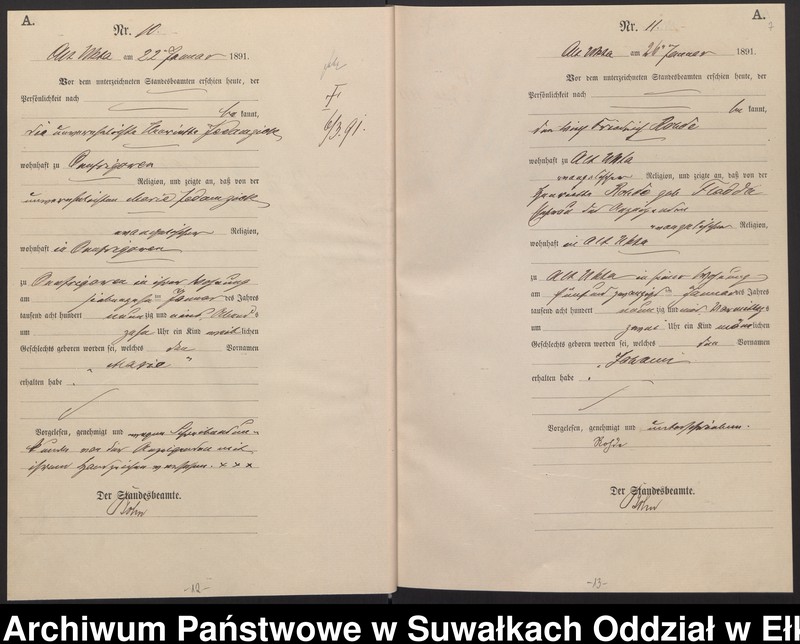 A.
Nr. 10.
Alt Ukta am 22ten Januar 1891.
Vor dem unterzeichneten Standesbeamten erschien heute, der
Persönlichkeit nach
be kannt,
die unverehelichte Henriette Jedamzick
wohnhaft zu
Religion, und zeigte an, daß von der
unverehelichten Marie Jedamzick
evangelischer Religion,
wohnhaft in
zu in ihrer Wohnung
am siebenzehn ten Januar des Jahres
tausend acht hundert neun zig und eins Abends
um zehn Uhr ein Kind weib lichen
Geschlechts geboren worden sei, welches den Vornamen
„Marie“
erhalten habe.
Vorgelesen, genehmigt und wegen Schreibensun-
kunde von der mit
ihrem Handzeichen versehen. x x x
Der Standesbeamte.
Bohn
†
6/3.91.
-12-
A.
7
Nr. 11
Alt Ukta am 26ten Januar 1891.
Vor dem unterzeichneten Standesbeamten erschien heute, der
Persönlichkeit nach
be kannt,
der Wirt Friedrich Rohde
wohnhaft zu Alt Ukta
evangelischer Religion, und zeigte an, daß von der
Henriette Rohde geb.
Ehefrau des Anzeigenden
evangelischer Religion,
wohnhaft in Alt Ukta
zu Alt Ukta in seiner Wohnung
am fünfundzwanzigsten Januar des Jahres
tausend acht hundert neun zig und eins Vormittags
um zwei Uhr ein Kind männ lichen
Geschlechts geboren worden sei, welches den Vornamen
„Johann
erhalten habe.
Vorgelesen, genehmigt und unterschrieben.
Rohde
Der Standesbeamte.
Bohn
-13-
Archiwum Państwowe w Suwałkach Oddział w Eł